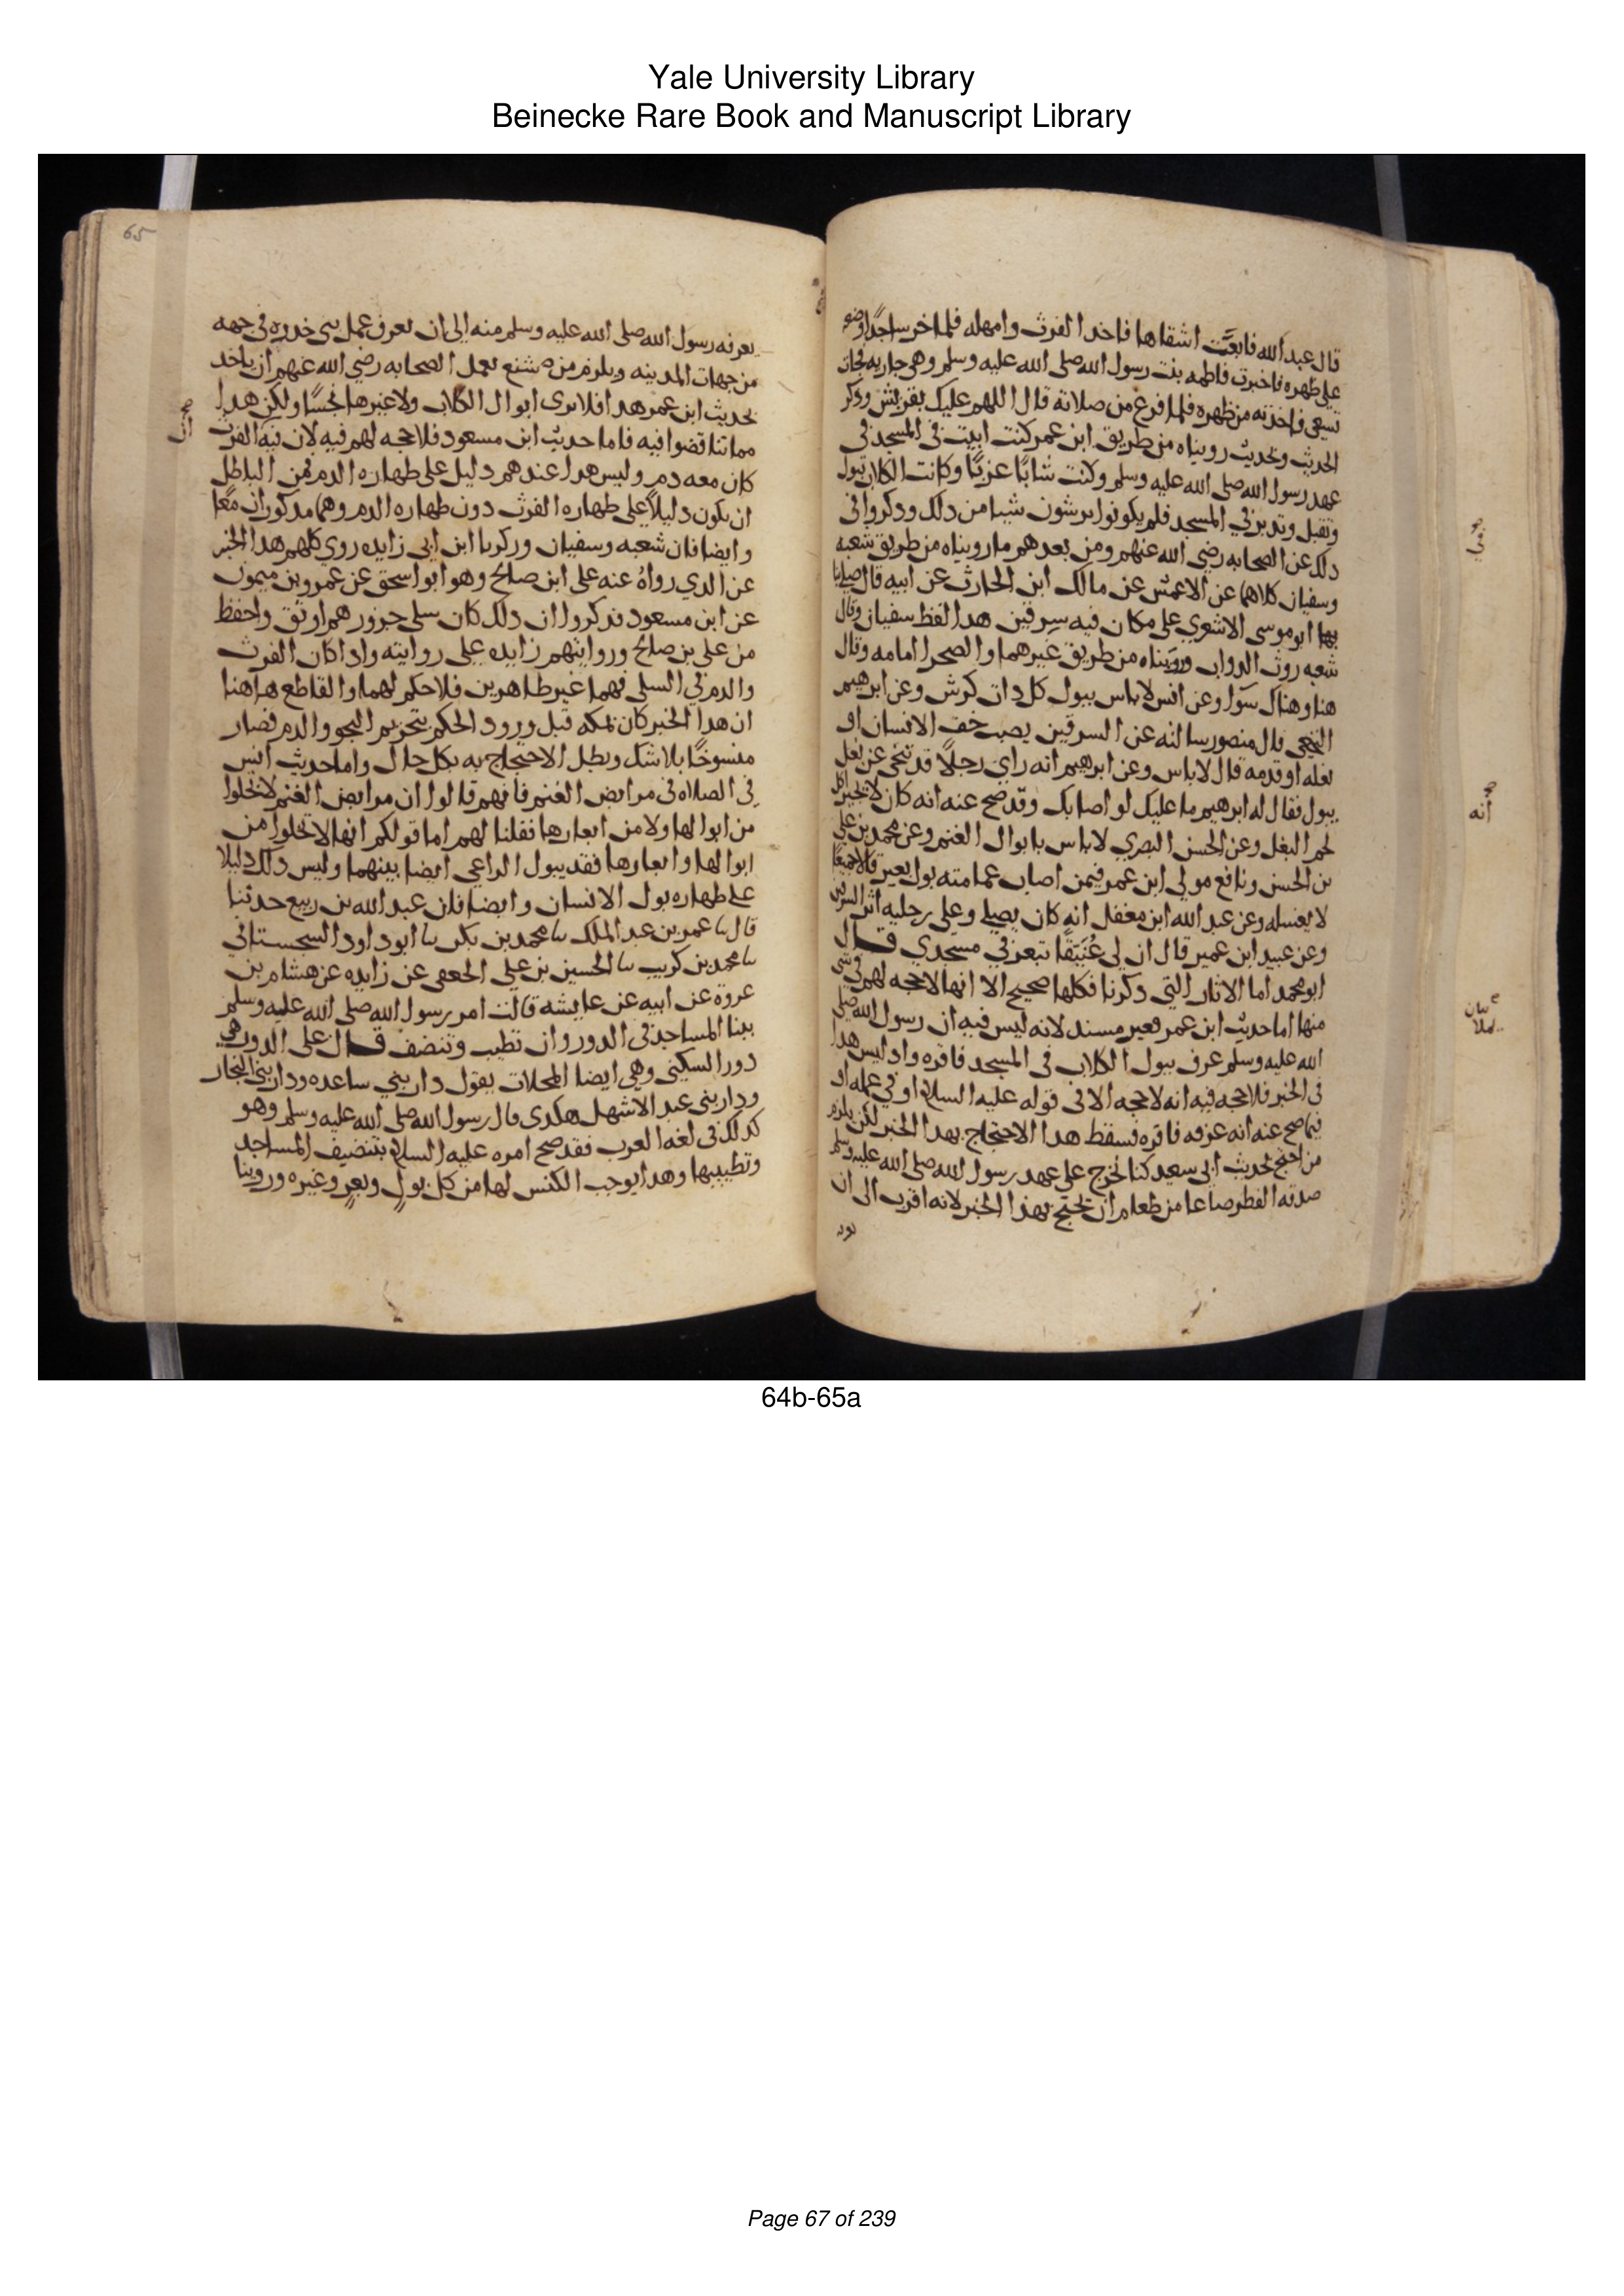 Yale University Library
Beinecke Rare Book and Manuscript Library
قال عبدالله فانبعث اشقاها فاخد الفرث وامهله فلما خر ساجدًا وضعه
على ظهره فاخبرت فاطمه بنت رسول الله صلى الله عليه وسلم وهي جاريه فجات
تسعى فاخذته من ظهره فلما فرغ من صلاته قال اللهم عليك بقريش وذكر
الحديث وبحديث رويناه من طريق ابن عمر كنت ابيت في المسجد في
عهد رسول الله صلى الله عليه وسلم وكنت شابًا عزبًا وكانت الكلاب تبول
وتقبل وتدبر في المسجد فلم يكونوا يرشون شيا من دلك ودكروا في
دلك عن الصحابه رضي الله عنهم ومن بعدهم ما رويناه من طريق شعبه
وسفيان كلاهما عن الاعمش عن مالك ابن الحارث عن ابيه قال صلى بنا
بها ابو موسى الاشعري على مكان فيه سرقين هدا لفظ سفيان وقال
شعبه روث الدواب ورويناه من طريق غيرهما والصحرا امامه وقال
هنا وهناك سوا وعن انس لاباس ببول كل دات كرش وعن ابرهيم
النخعي قال منصور سالته عن السرقين يصيب خف الانسان او
نعله او قدمه قال لاباس وعن ابرهيم انه راي رجلاً قد تنحى عن بغل
يبول فقال له ابرهيم ما عليك لو اصابك وقد صح عنه انه كان لا يجيز اكل
لحم البغل وعن الحسن البصري لاباس بابوال الغنم وعن محمد بن علي
بن الحسن ونافع مولى ابن عمر فيمن اصاب عمامته بول بعير قالا جميعًا
لا يغسله وعن عبد الله ابن مغفل انه كان يصلي وعلى رجليه اثر السرقين
وعن عبيد ابن عمير قال ان لي عُنَيقًا تبعر في مسجدي قال
ابو محمد اما الاثار التي دكرنا فكلها صحيح الا انها لا حجه لهم في شي
منها اما حديث ابن عمر فغير مسند لانه ليس فيه ان رسول الله صلى
الله عليه وسلم عرف ببول الكلاب في المسجد فاقره واد ليس هدا
في الخبر فلا حجه فيه انه لا حجه الا في قوله عليه السلام او في عمله او
فيما صح عنه انه عرفه فاقره فسقط هدا الاحتجاج بهدا الخبر لكن يلزم
من احتج بحديث ابي سعيد كنا نخرج على عهد رسول الله صلى الله عليه وسلم
صدقه الفطر صاعا من طعام ان يحتج بهذا الخبر لانه اقرب الى ان
انه
65
يعرفه رسول الله صلى الله عليه وسلم منه الى ان يعرف عمل بني خدره في جهه
من جهات المدينه ويلزم من شنع بعمل الصحابه رضي الله عنهم ان ياخد
بحديث ابن عمر هدا فلا يرى ابوال الكلاب ولا غيرها نجسًا ولكن هدا
مما تناقضوا فيه فاما حديث ابن مسعود فلا حجه لهم فيه لان فيه الفرث
كان معه دم وليس هدا عندهم دليل على طهاره الدم فمن الباطل
ان يكون دليلاً على طهاره الفرث دون طهاره الدم وهما مدكوران معًا
وايضا فان شعبه وسفيان وزكريا ابن ابي زايده روي كلهم هدا الخبر
عن الدي رواهُ عنه على ابن صالح وهو ابو اسحق عن عمرو بن ميمون
عن ابن مسعود فدكروا ان دلك كان سلى جزور هم اوثق واحفظ
من علي بن صالح وروايتهم زايده على روايته وادا كان الفرث
والدم في السلى فهما غير طاهرين فلا حكم لهما والقاطع هاهنا
ان هدا الخبر كان بمكه قبل ورود الحكم بتحريم النجو والدم فصار
منسوخًا بلا شك وبطل الاحتجاج به بكل حال واما حديث انس
في الصلاه في مرابض الغنم فانهم قالوا ان مرابض الغنم لا تخلوا
من ابوالها ولا من ابعارها فقلنا لهم اما قولكم انها لا تخلوا من
ابوالها وابعارها فقد يبول الراعي ايضا بينهما وليس دلك دليلا
على طهاره بول الانسان وايضا فان عبد الله بن ربيع حدثنا
قال سا عمر بن عبد الملك سا محمد بن بكر سا ابو داود السجستاني
سا محمد بن كريب سا الحسين بن علي الجعفي عن زايده عن هشام بن
عروة عن ابيه عن عايشه قالت امر رسول الله صلى الله عليه وسلم
ببنا المساجد في الدور وان تطيب وتنضف قال على الدور هي
دور السكنى وهي ايضا المحلات يقول دار بني ساعده ودار بني النجار
ودار بني عبد الاشهل هكدى قال رسول الله صلى الله عليه وسلم وهو
كدلك في لغه العرب فقد صح امره عليه السلام بتنضيف المساجد
وتطييبها وهدا يوجب الكنس لها من كل بولٍ وبعرٍ وغيره وروينا
64b-65a
Page 67 of 239